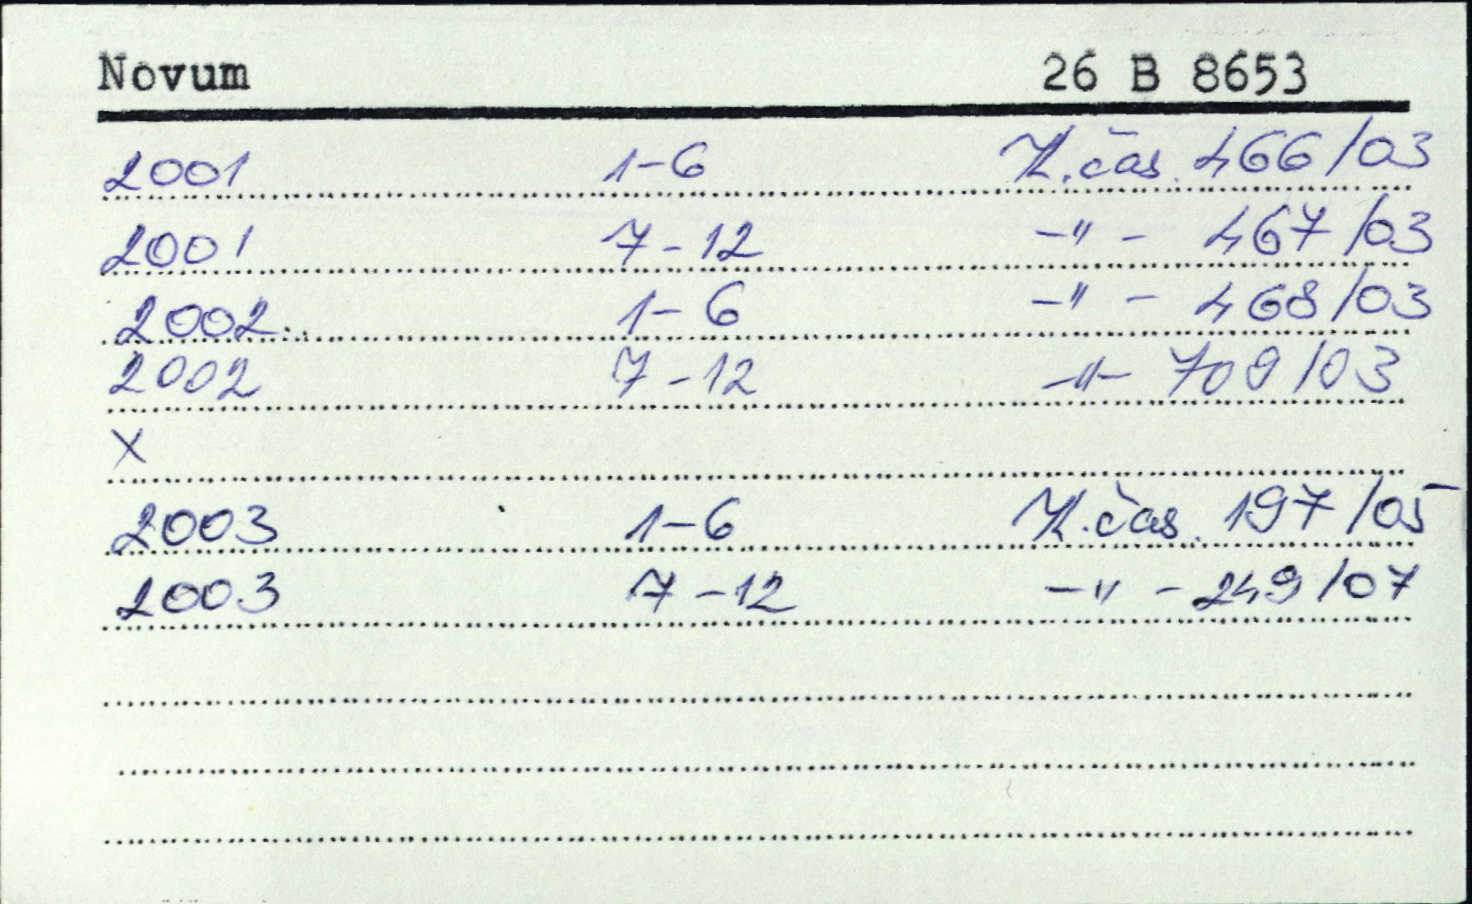 Novum 26 B 8653
2001 1-6 Zl. čas. 466/03
2001 7-12 -"- 467/03
2002 1-6 -"- 468/03
2002 7-12 -"- 709/03
X
2003 1-6 Zl. čas. 197/05
2003 7-12 -"- 249/07